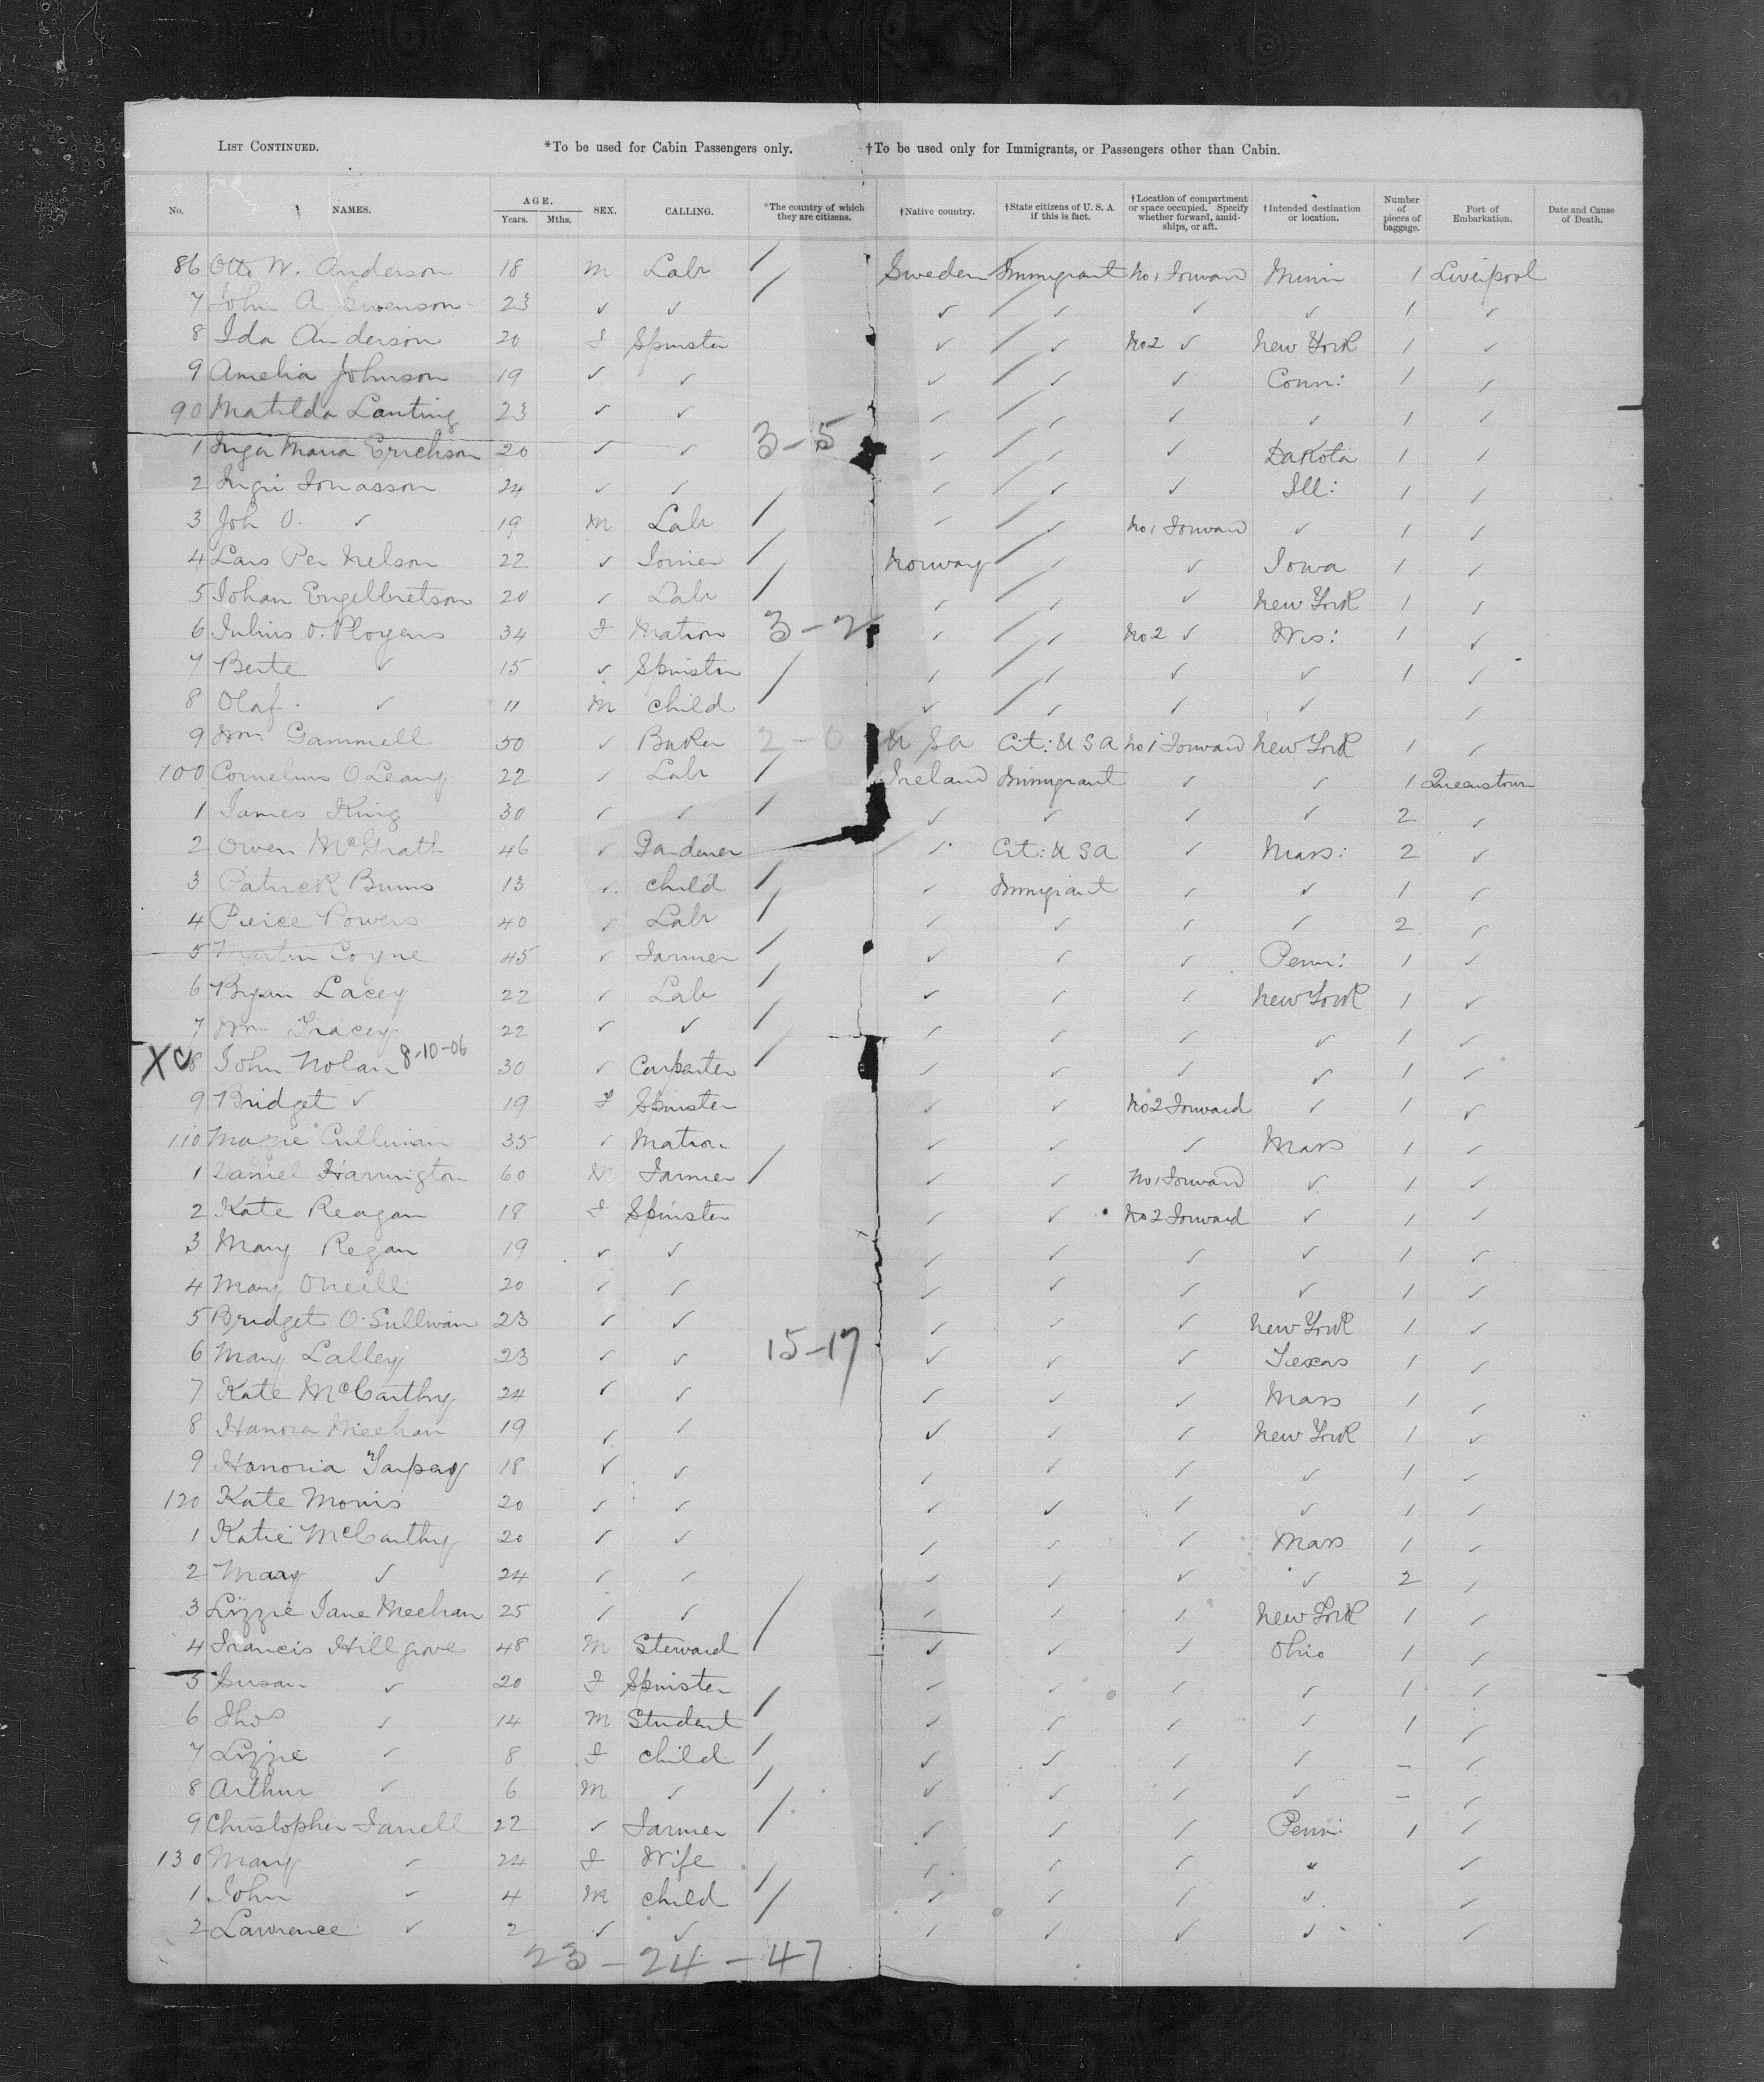 LIST CONTINUED. *To be used for Cabin Passengers only. †To be used only for Immigrants, or Passengers other than Cabin.
No. NAMES. AGE. Years. Mths. SEX. CALLING. *The country of which they are citizens. †Native country. †State citizens of U. S. A. if this is fact. †Location of compartment or space occupied. Specify whether forward, amidships, or aft. †Intended destination or location. Number of pieces of baggage. Port of Embarkation. Date and Cause of Death.
86 Otto W. Anderson 18 M Labr / Sweden Immigrant No 1 Forward Minn 1 Liverpool
7 John A Swenson 23 ✓ ✓ / ✓ ✓ ✓ ✓ 1 ✓
8 Ida Anderson 20 F Spinster ✓ ✓ No 2 ✓ New York 1 ✓
9 Amelia Johnson 19 ✓ ✓ ✓ ✓ ✓ Conn: 1 ✓
90 Matilda Lanting 23 ✓ ✓ ✓ ✓ ✓ ✓ 1 ✓
1 Inga Maria Erickson 20 ✓ ✓ 3-5 ✓ ✓ ✓ Dakota 1 ✓
2 Ingri Jonasson 24 ✓ ✓ ✓ ✓ ✓ Ill: 1 ✓
3 Joh O. ✓ 19 M Labr / ✓ ✓ No 1 Forward ✓ 1 ✓
4 Lars Per Nelson 22 ✓ Joiner / Norway ✓ ✓ Iowa 1 ✓
5 Johan Engelbretson 20 ✓ Labr / ✓ ✓ ✓ New York 1 ✓
6 Julius O. Ployens 34 F Matron 3-2 ✓ ✓ No 2 ✓ Wis: 1 ✓
7 Berte ✓ 15 ✓ Spinster / ✓ ✓ ✓ ✓ 1 ✓
8 Olaf. ✓ 11 M child / ✓ ✓ ✓ ✓ ✓
9 Wm. Gammell 50 ✓ Baker 2-0 U S A Cit: U S A No 1 Forward New York 1 ✓
100 Cornelius O Leary 22 ✓ Labr / Ireland Immigrant ✓ ✓ 1 Queenstown
1 James King 30 ✓ ✓ / ✓ ✓ ✓ ✓ 2 ✓
2 Owen McGrath 46 ✓ Gardener ✓ Cit: U S A ✓ Mass: 2 ✓
3 Patrick Burns 13 ✓ child / ✓ Immigrant ✓ ✓ 1 ✓
4 Pierce Powers 40 ✓ Labr / ✓ ✓ ✓ ✓ 2 ✓
5 Martin Coyne 45 ✓ Farmer / ✓ ✓ ✓ Penn: 1 ✓
6 Bryan Lacey 22 ✓ Labr / ✓ ✓ ✓ New York 1 ✓
7 Wm. Tracey 22 ✓ ✓ / ✓ ✓ ✓ ✓ 1 ✓
XC 8 John Nolan 8-10-06 30 ✓ Carpenter / ✓ ✓ ✓ ✓ 1 ✓
9 Bridget ✓ 19 F Spinster ✓ ✓ No 2 Forward ✓ 1 ✓
110 Maggie Cullinan 35 ✓ Matron ✓ ✓ ✓ Mass 1 ✓
1 Daniel Harrington 60 M Farmer / ✓ ✓ No 1 Forward ✓ 1 ✓
2 Kate Reagan 18 F Spinster ✓ ✓ No 2 Forward ✓ 1 ✓
3 Mary Regan 19 ✓ ✓ ✓ ✓ ✓ ✓ 1 ✓
4 Mary Oneill 20 ✓ ✓ ✓ ✓ ✓ ✓ 1 ✓
5 Bridget O.Sullivan 23 ✓ ✓ ✓ ✓ ✓ New York 1 ✓
6 Mary Lalley 23 ✓ ✓ 15-17 ✓ ✓ ✓ Texas 1 ✓
7 Kate McCarthy 24 ✓ ✓ ✓ ✓ ✓ Mass 1 ✓
8 Hanora Meehan 19 ✓ ✓ ✓ ✓ ✓ New York 1 ✓
9 Honoria 18 ✓ ✓ ✓ ✓ ✓ ✓ 1 ✓
120 Kate Morris 20 ✓ ✓ ✓ ✓ ✓ ✓ 1 ✓
1 Katie McCarthy 20 ✓ ✓ ✓ ✓ ✓ Mass 1 ✓
2 Mary ✓ 24 ✓ ✓ ✓ ✓ ✓ ✓ 2 ✓
3 Lizzie Jane Meehan 25 ✓ ✓ ✓ ✓ ✓ New York 1 ✓
4 Francis Hillgrove 48 M Steward / ✓ ✓ ✓ Ohio 1 ✓
5 Susan ✓ 20 F Spinster ✓ ✓ ✓ ✓ 1 ✓
6 Thos ✓ 14 M Student / ✓ ✓ ✓ ✓ 1 ✓
7 Lizzie ✓ 8 F child / ✓ ✓ ✓ ✓ - ✓
8 Arthur ✓ 6 M ✓ / ✓ ✓ ✓ ✓ - ✓
9 Christopher Farrell 22 ✓ Farmer / ✓ ✓ ✓ Penn: 1 ✓
130 Mary ✓ 24 F Wife ✓ ✓ ✓ ✓ ✓
1 John ✓ 4 M child / ✓ ✓ ✓ ✓ ✓
2 Lawrence ✓ 2 ✓ ✓ / ✓ ✓ ✓ ✓ ✓
23-24-47